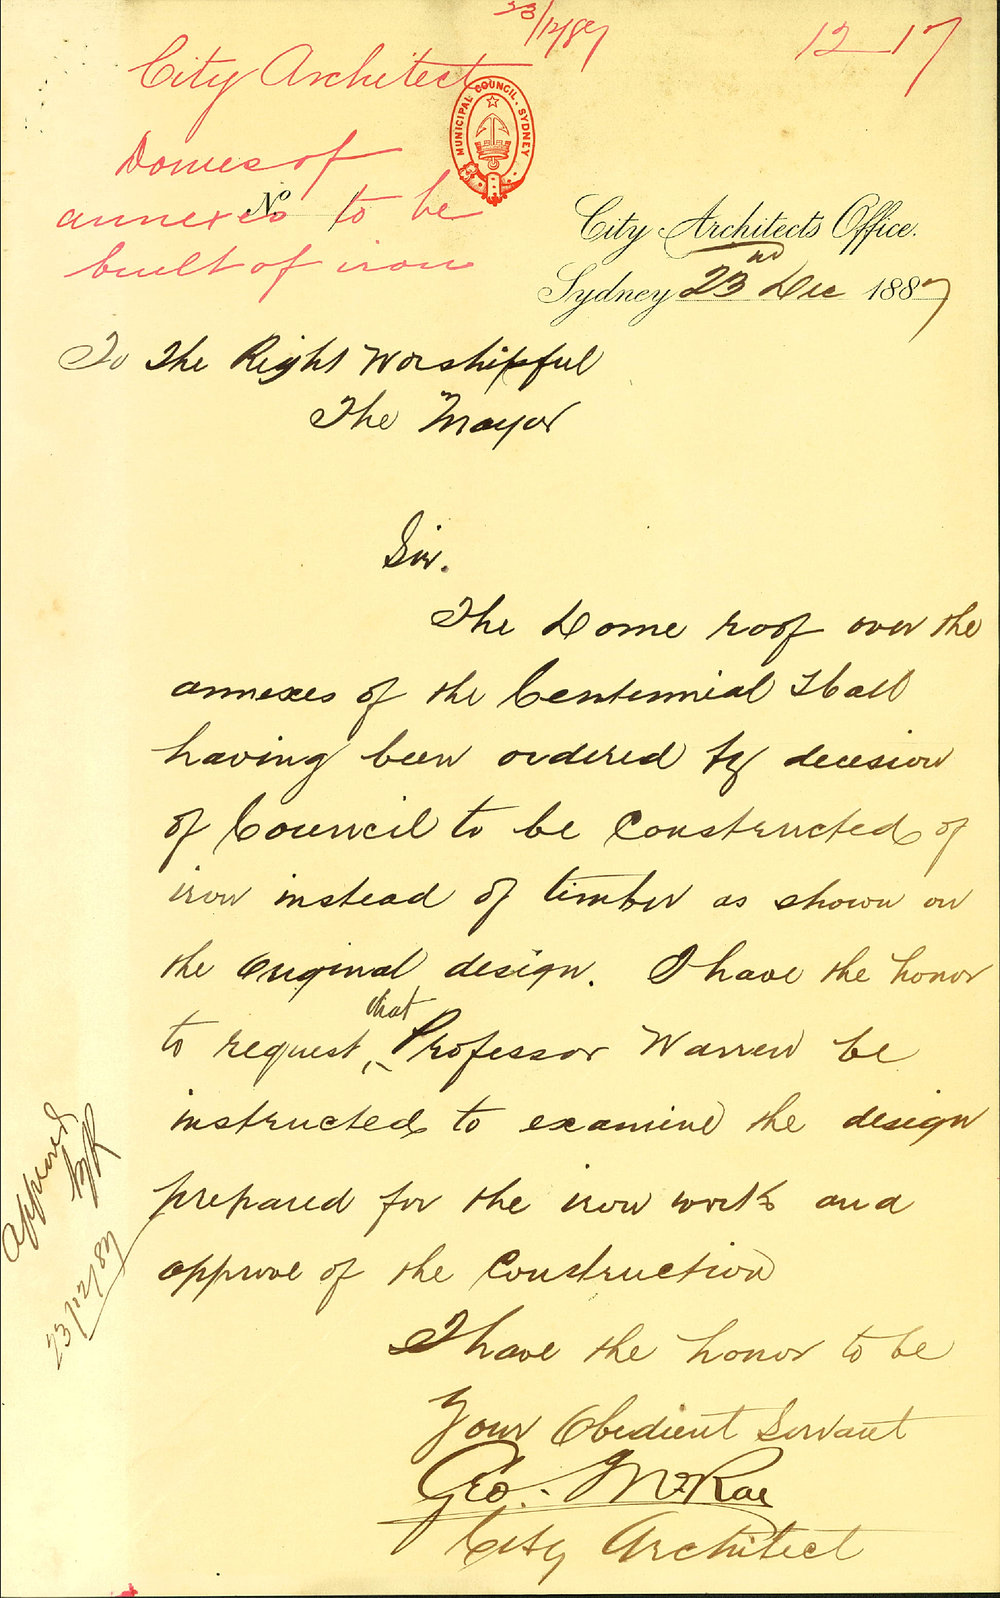 23/12/87
12 17
City Architect
MUNICIPAL COUNCIL. SYDNEY
Domes of
annexes to be
built of iron
No
City Architects Office.
Sydney 23nd Dec 1887
To The Right Worshipful
The Mayor
Sir.
The Dome roof over the
annexes of the Centennial Hall
having been ordered by decision
of Council to be constructed of
iron instead of timber as shown on
the original design. I have the honor
to request that Professor Warren be
instructed to examine the design
prepared for the iron work and
approve of the Construction
I have the honor to be
Your Obedient Servant
Geo. McRae
City Architect
Approved
23/12/87